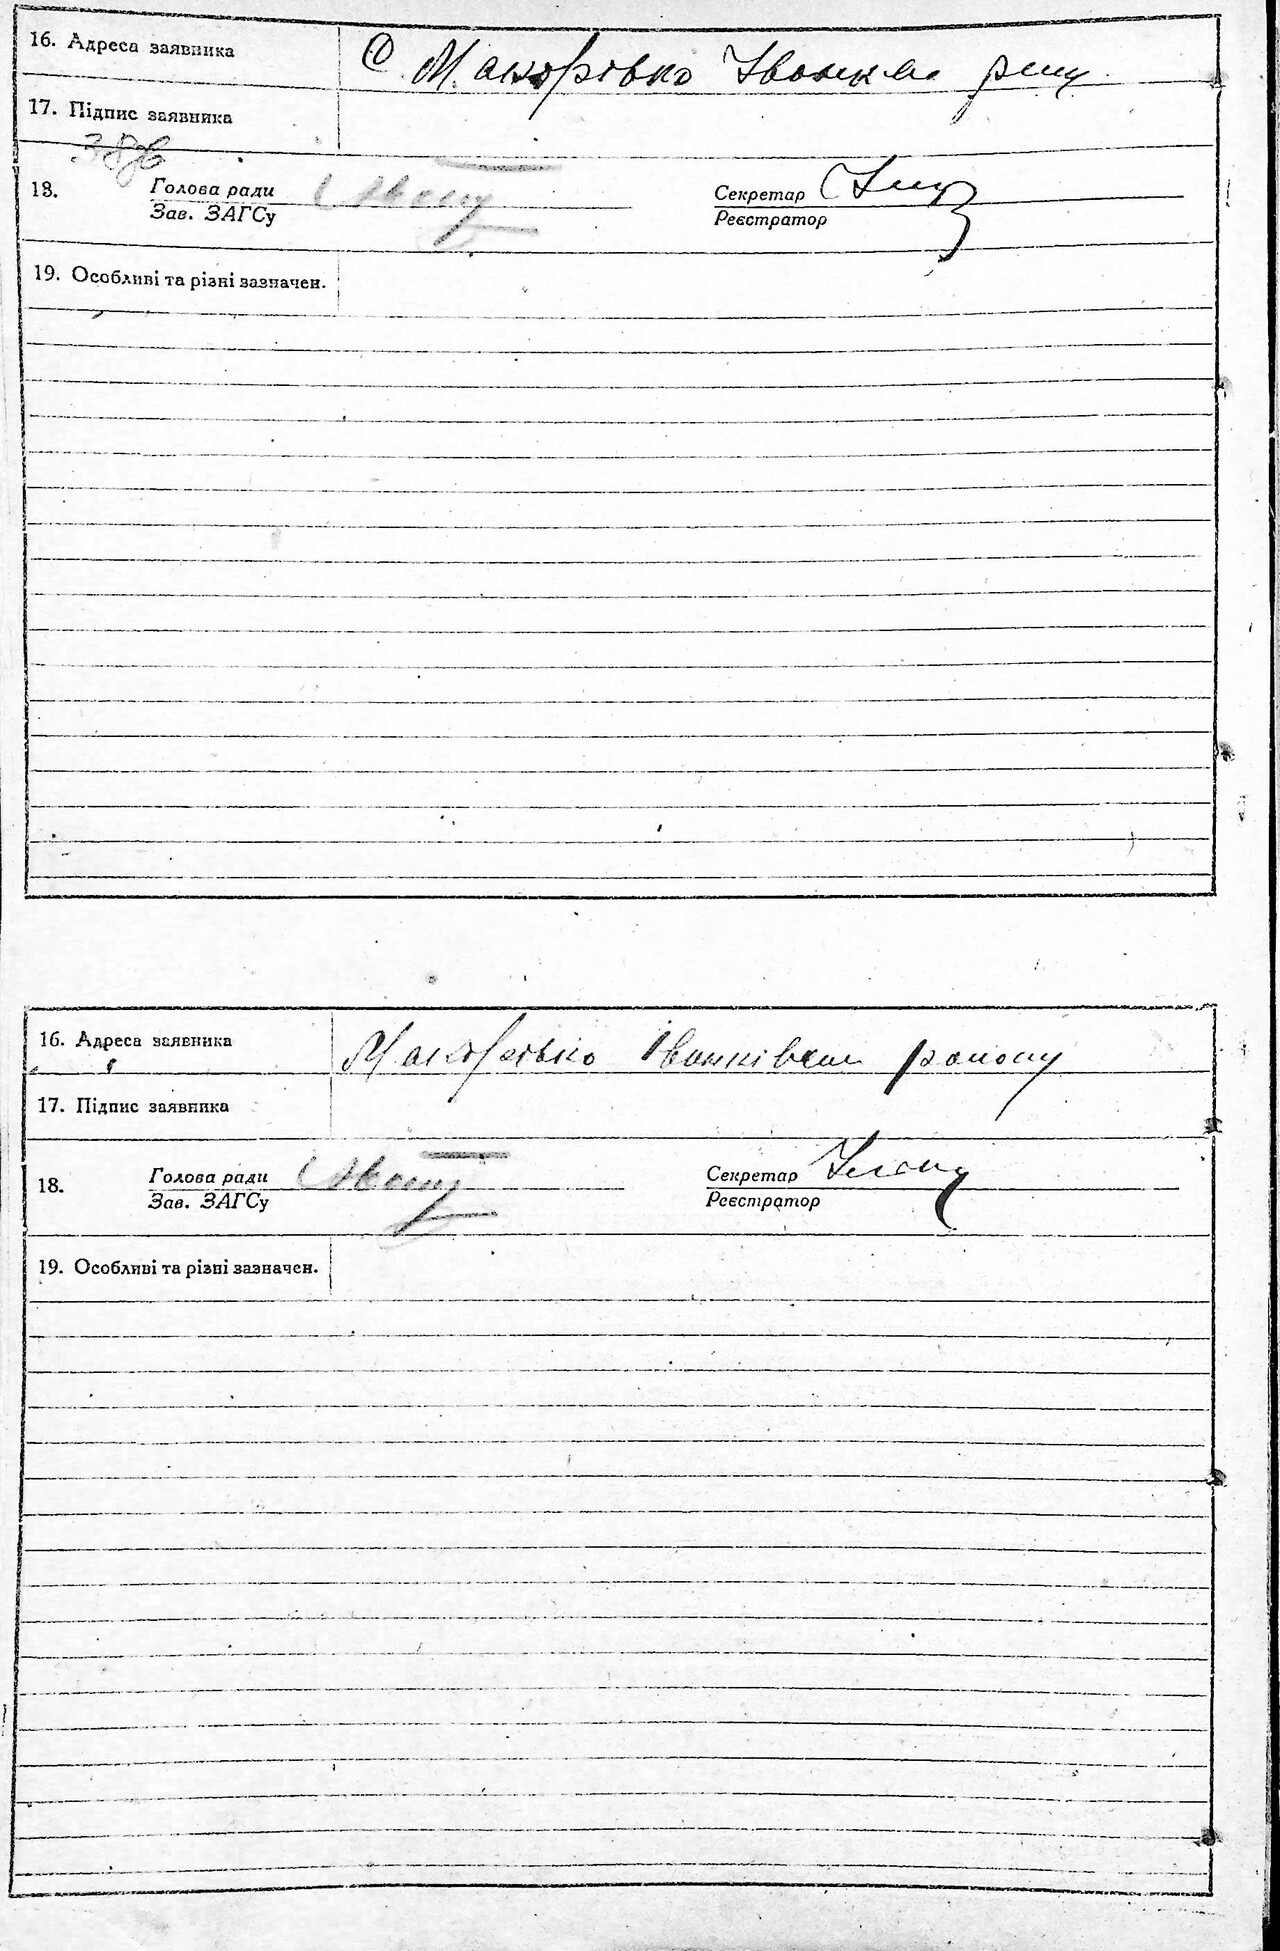 16. Адреса заявника С. Макорівка Іванків. р-ну
17. Підпис заявника
38
18. Голова ради Секретар
Зав. ЗАГСу Реєстратор
19. Особливі та різні зазначен.
16. Адреса заявника Макорівка Іванківськ району
17. Підпис заявника
18. Голова ради Секретар
Зав. ЗАГСу Реєстратор
19. Особливі та різні зазначен.